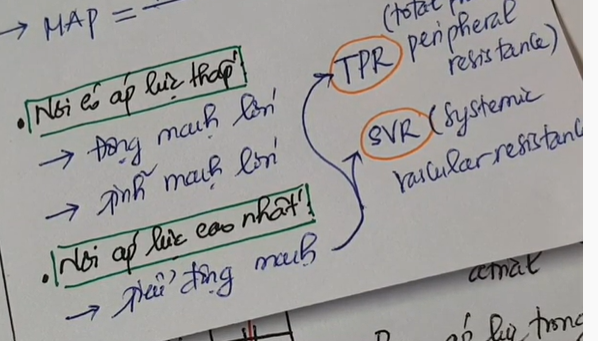 → MAP =
. Nơi có áp lực thấp
→ động mạch lớn
→ tĩnh mạch lớn
. Nơi áp lực cao nhất:
→ tiểu động mạch
TPR
peripheral
resistance)
SVR (systemic
vascular resistance
amat
lực trong